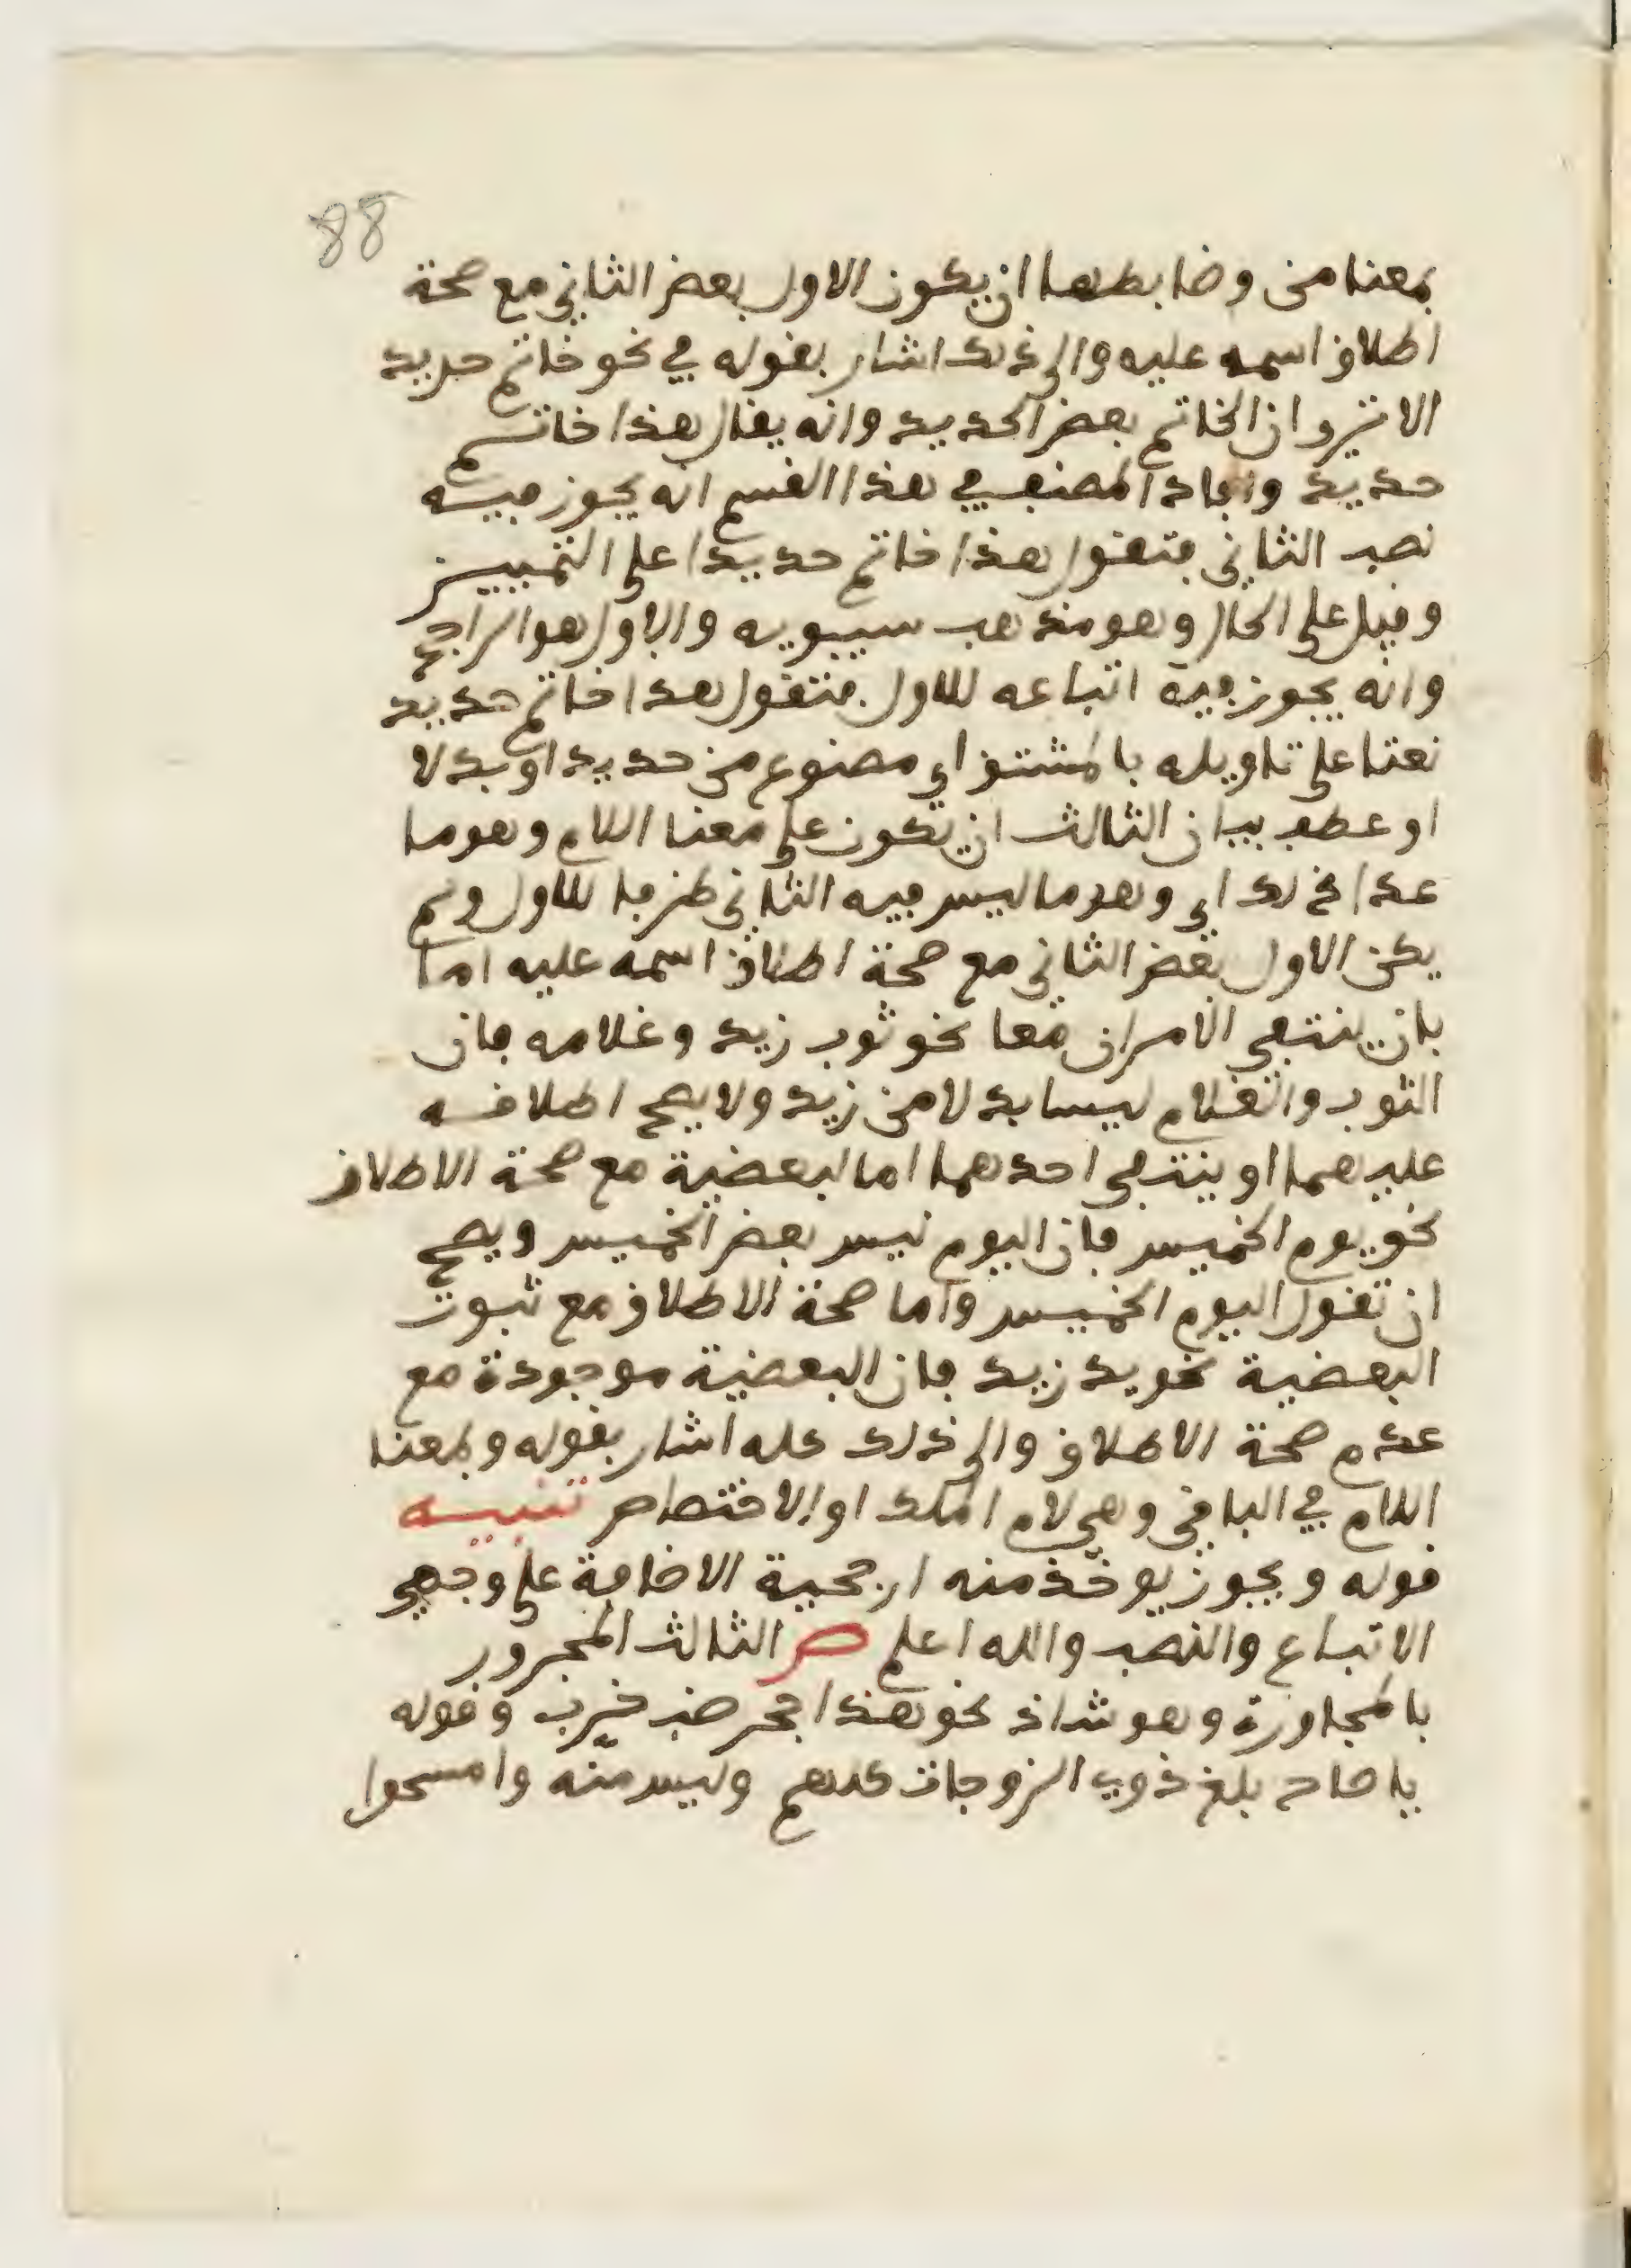 88
بمعنا من وضابطها ان يكون الاول بعض الثاني مع صحة
اطلاق اسمه عليه والى ذلك اشار بقوله في نحو خاتم حديد
الا ترو ان الخاتم بعض الحديد وانه يقال هذا خاتم
حديد وافاد المصنف في هذا القسم انه يجوز فيه
نصب الثاني فتقول هذا خاتم حديدا على التمييز
وقيل على الحال وهو مذهب سيبويه والاول هو الراجح
وانه يجوز فيه اتباعه للاول فتقول هذا خاتم حديد
نعتا على تاويله بالمشتق اي مصنوع من حديد او بدلا
او عطف بيان الثالث ان يكون على معنا اللام وهو ما
عدا ذلك اي وهو ما ليس فيه الثاني ظرفا للاول ولم
يكن الاول بعض الثاني مع صحة اطلاق اسمه عليه اما
بان ينتفي الامران معا نحو ثوب زيد وغلامه فان
الثوب والغلام ليسا بدلا من زيد ولا يصح اطلاقه
عليهما او ينتفي احدهما اما لبعضية مع صحة الاطلاق
نحو يوم الخميس فان اليوم ليس بعض الخميس ويصح
ان تقول اليوم الخميس واما صحة الاطلاق مع ثبوت
البعضية نحو يد زيد فان البعضية موجودة مع
عدم صحة الاطلاق والى ذلك كله اشار بقوله وبمعنا
اللام في الباقي وهي لام الملك او الاختصاص تنبيه
قوله ويجوز يوخذ منه ارجحية الاضافة على وجهي
الاتباع والنصب والله اعلم ص الثالث المجرور
بالمجاورة وهو شاذ نحو هذا جحر ضب خرب وقوله
يا صاح بلغ ذوي الزوجات كلهم وليس منه وامسحوا